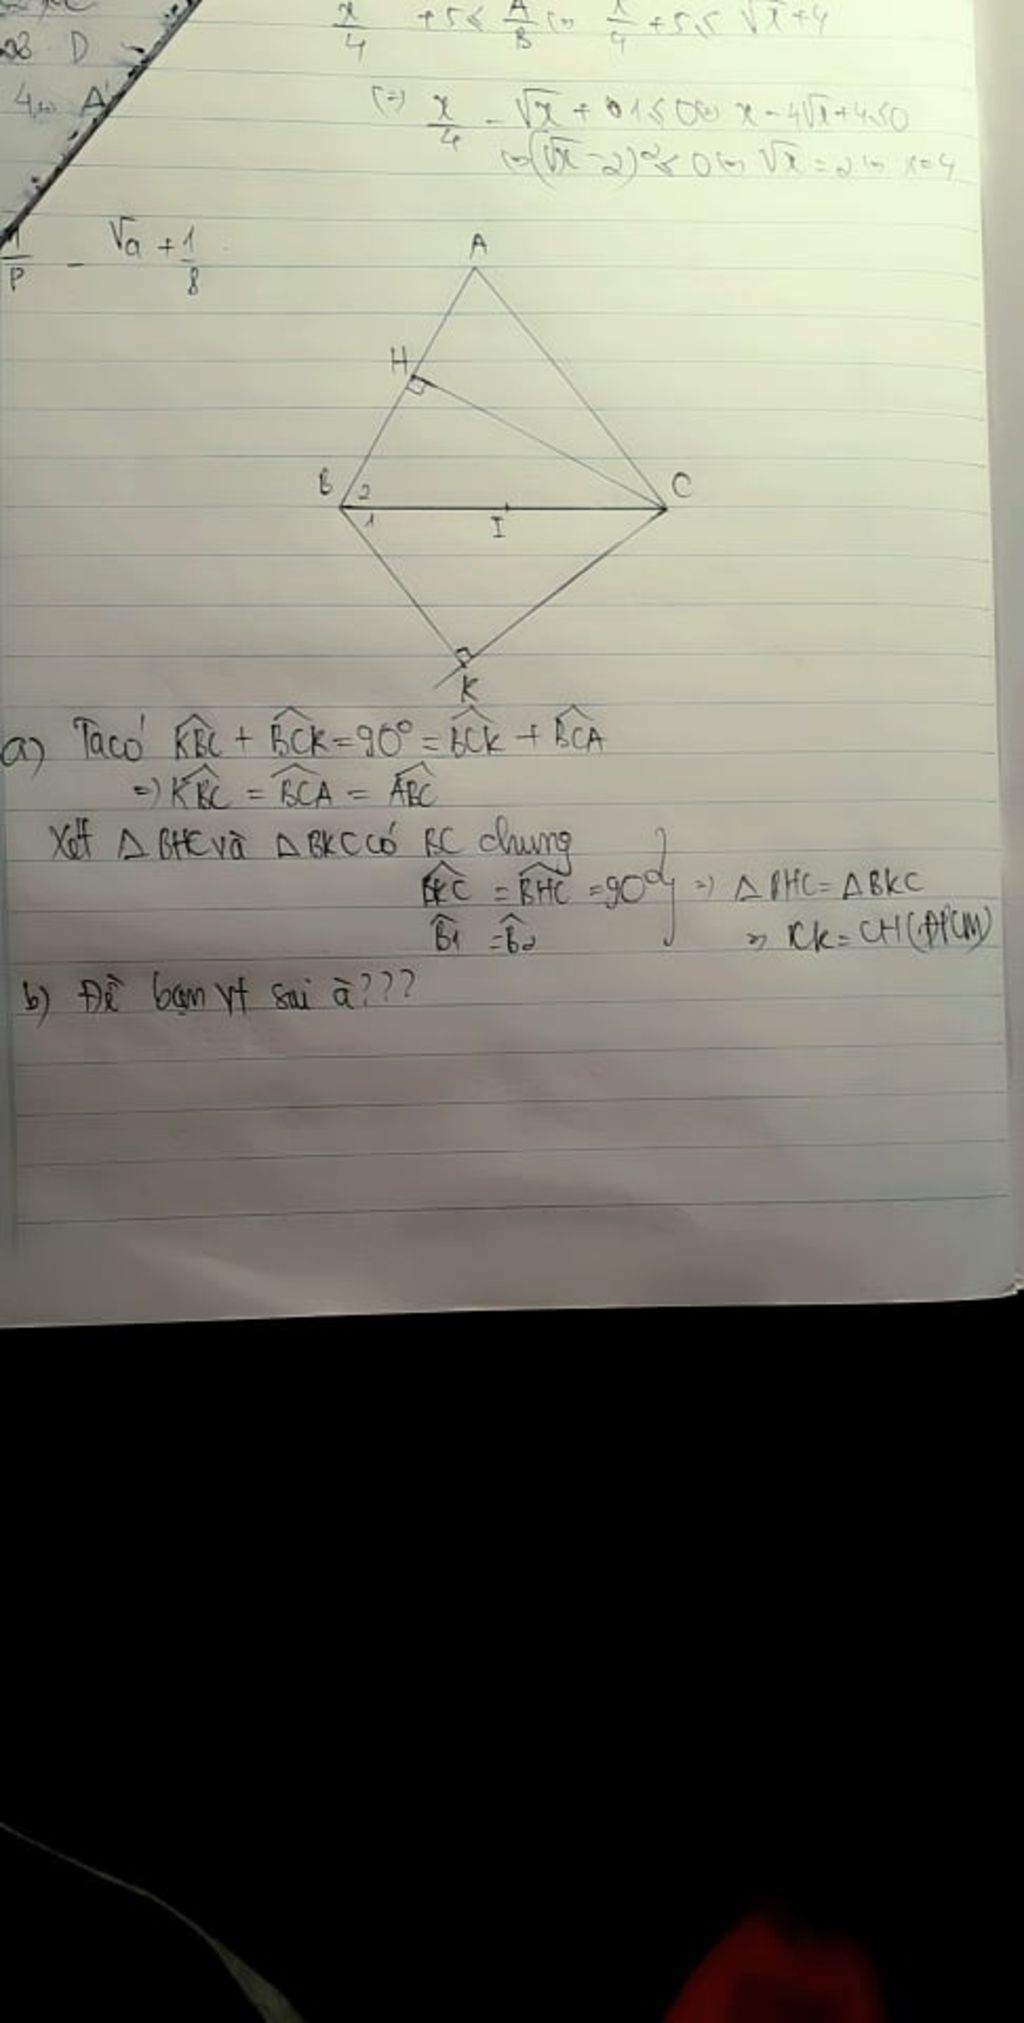 D
4 A
x/4 + 5 ≤ A/B ⇔ x/4 + 5 ≤ √x + 4
(=) x/4 - √x + 1 ≤ 0 ⇔ x - 4√x + 4 ≤ 0
⇔ (√x - 2)² ≤ 0 ⇔ √x = 2 ⇔ x = 4
1/P - √a + 1/8
A
H
B 2 C
1 I
K
a) Ta có KBC + BCK = 90° = BCK + BCA
=) KBC = BCA = ABC
Xét Δ BHC và Δ BKC có BC chung
BKC = BHC = 90° =) Δ BHC = Δ BKC
B1 = B2 => CK = CH (ĐPCM)
b) Đề bạn vt sai à???